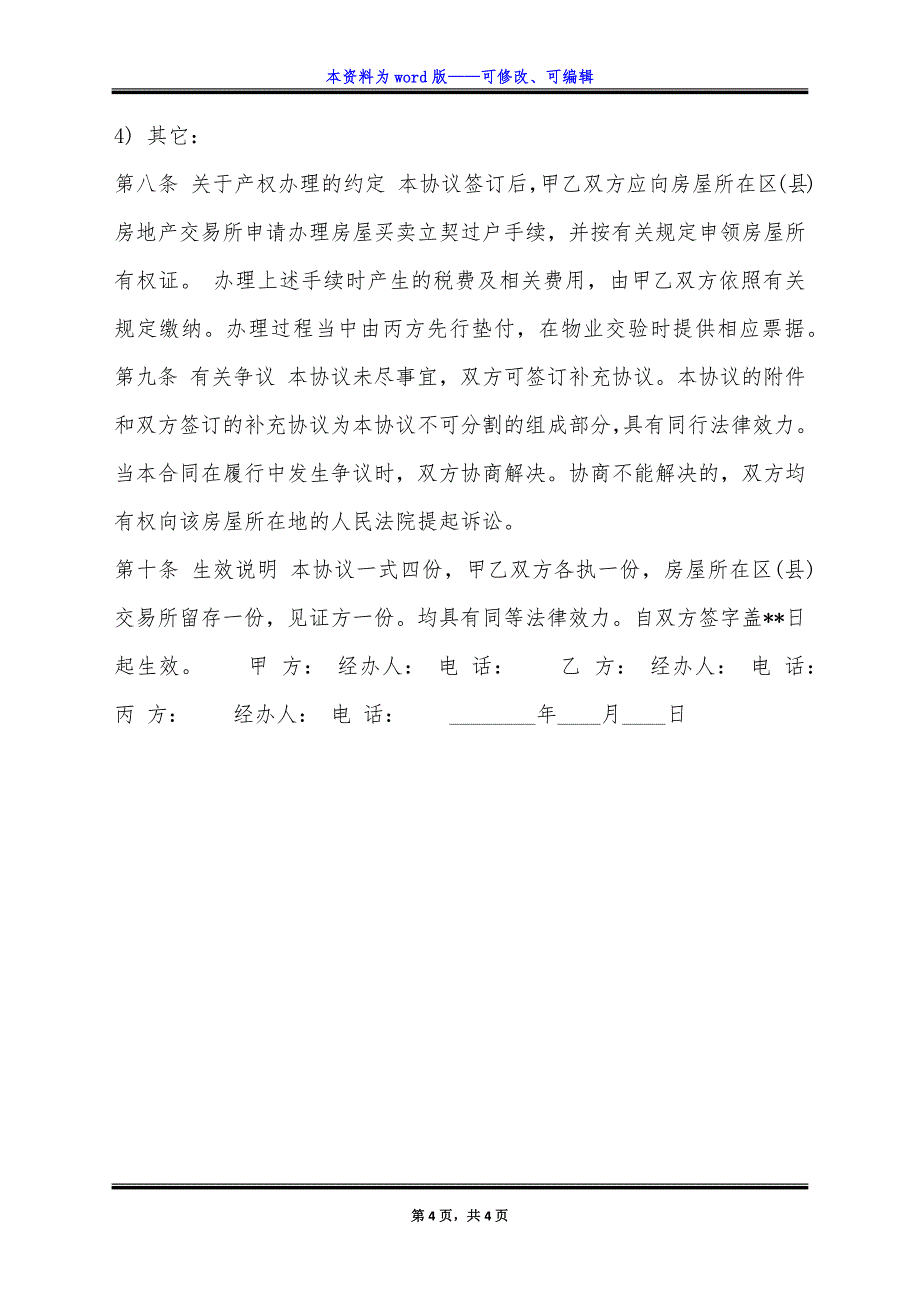 本资料为 word 版——可修改、可编辑
4) 其它：
第八条 关于产权办理的约定 本协议签订后，甲乙双方应向房屋所在区(县)
房地产交易所申请办理房屋买卖立契过户手续，并按有关规定申领房屋所
有权证。 办理上述手续时产生的税费及相关费用，由甲乙双方依照有关
规定缴纳。办理过程当中由丙方先行垫付，在物业交验时提供相应票据。
第九条 有关争议 本协议未尽事宜，双方可签订补充协议。本协议的附件
和双方签订的补充协议为本协议不可分割的组成部分，具有同行法律效力。
当本合同在履行中发生争议时，双方协商解决。协商不能解决的，双方均
有权向该房屋所在地的人民法院提起诉讼。
第十条 生效说明 本协议一式四份，甲乙双方各执一份，房屋所在区(县)
交易所留存一份，见证方一份。均具有同等法律效力。自双方签字盖**日
起生效。 甲 方： 经办人： 电 话： 乙 方： 经办人： 电 话：
丙 方： 经办人： 电 话： ________年____月____日
第 4 页，共 4 页